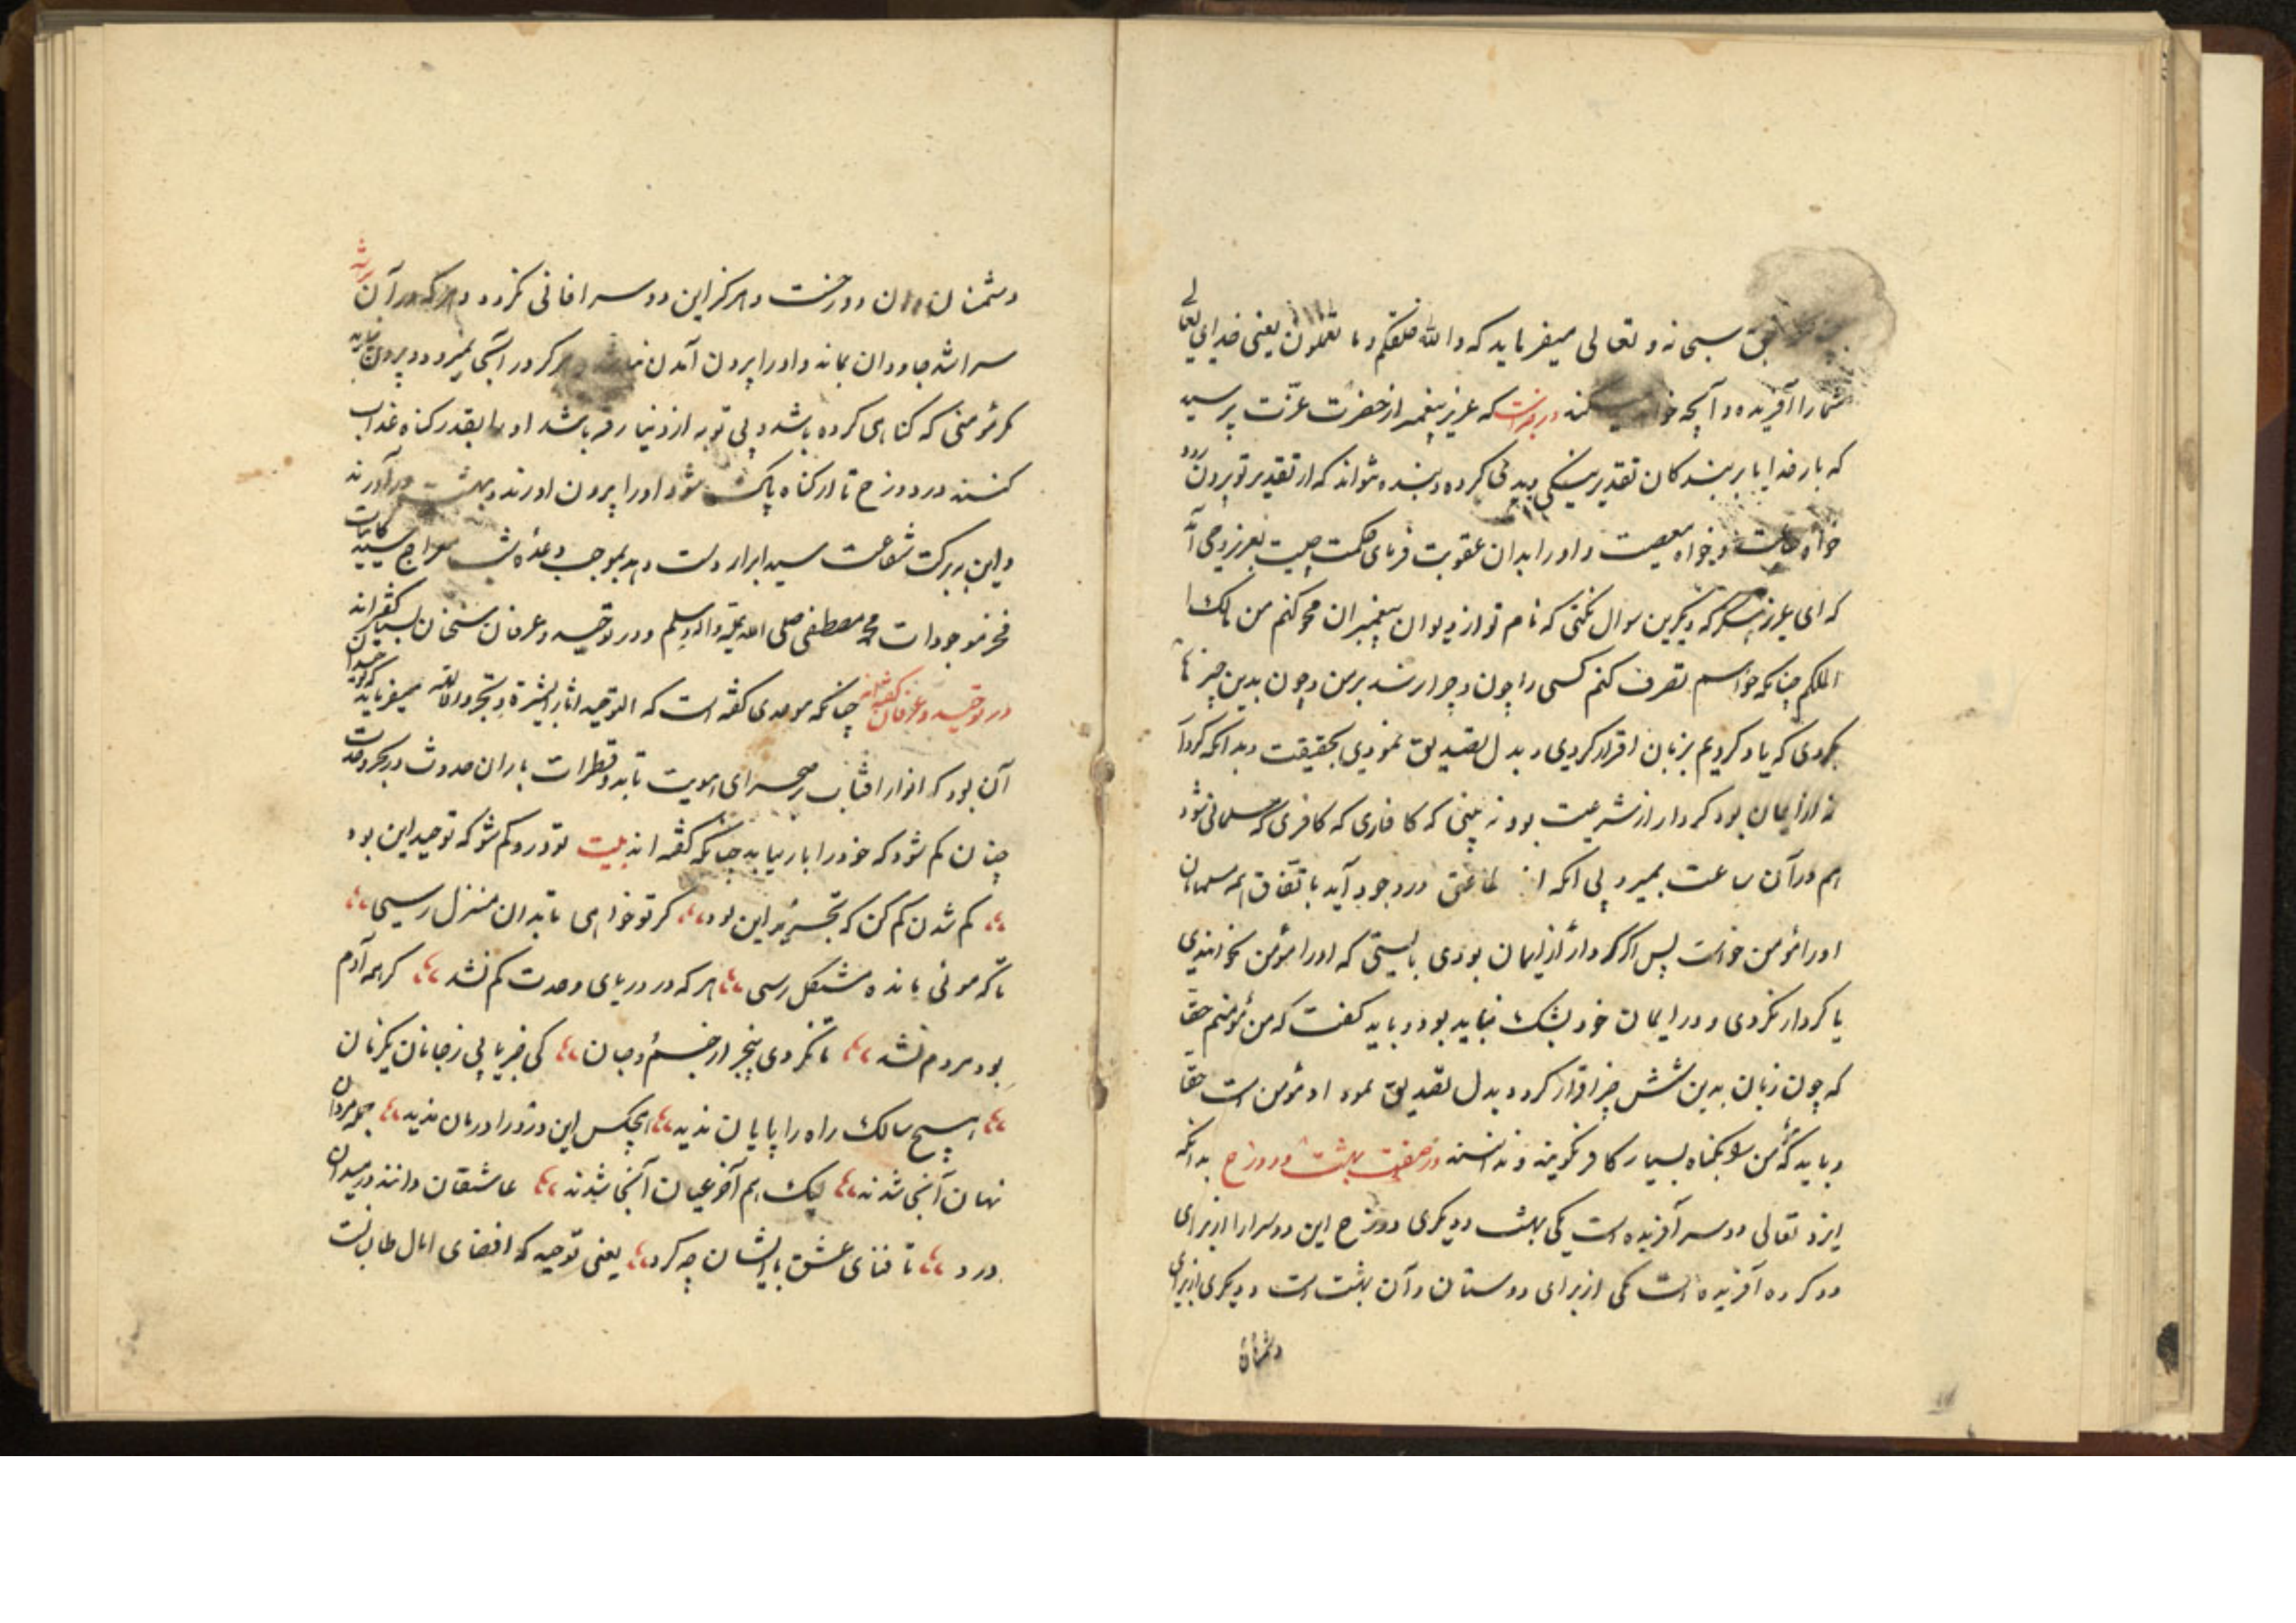 حق سبحانه و تعالی میفرماید که والله خلقکم وما تعملون یعنی خدای تعالی
شما را آفریده و آنچه کنند در روایتست که عزیز پیغمبر از حضرت عزّت پرسید
که بار خدایا بر بندکان تقدیر نیکی و بدی کرده و بنده نتواند که از تقدیر تو بیرون رود
خواه طاعت و خواه معصیت و او را بدان عقوبت فرمای حکمت چیست بعزیز وحی آمد
که ای عزیز دیکر این سوال نکنی که نام تو از دیوان پیغمبران محو کنم من مالک
الملکم چنانکه خواهم تصرف کنم کسی را چون و چرا نرسد بر من و چون بدین چیزها
بکردی که یاد کردیم بزبان اقرار کردی و بدل تصدیق نمودی بحقیقت و بدانکه کردار
نه از ایمان بود کردار از شریعت بود نه بینی که کافری که مسلمان شود
هم در آن ساعت بمیرد بی آنکه از طاعتی در وجود آید باتفاق همه مسلمانان
او را مؤمن خوانست پس اکر کردار از ایمان بودی بایستی که او را مؤمن نخواندندی
یا کردار نکردی و در ایمان خود بشک نباید بود و باید کفت که من مؤمنم حقا
که چون زبان بدین شش چیز اقرار کرد و بدل تصدیق نمود او مؤمن است حقا
و باید که مؤمن را بکناه بسیار کافر نکویند و ندانند در صفت بهشت و دوزخ بدانکه
ایزد تعالی دو سرا آفریده است یکی بهشت و دیکری دوزخ این دو سرا را از برای
دو کروه آفریده است یکی از برای دوستان و آن بهشت است و دیکری از برای
دشمنان
دشمنان و آن دوزخست و هرکز این دو سرا فانی نکردد و هر که در آن
سرا شد جاودان بماند و او را بیرون آمدن نباشد و هرکز در آنجا نمیرد و بیرون نیاید
مکر مؤمنی که کناهی کرده باشد و بی توبه از دنیا رفته باشد او را بقدر کناه عذاب
کنند در دوزخ تا از کناه پاک شود او را بیرون آورند و ببهشت درآورند
و این ببرکت شفاعت سید ابرار دست دهد بموجب وعدهٔ شب معراج سید کاینات
فخر موجودات محمد مصطفی صلی الله علیه و اله وسلم و در توحید و عرفان سخنان بسیار کفته‌اند
در توحید و عرفان کفته چنانکه موحدی کفته است که التوحید میفرماید که توحید
آن بود که انوار افتاب بر صحرای هویت تابد و قطرات باران حدوث در بحر وحدت
چنان کم شود که خود را باز نیابد چنانکه کفته اند بیت تو درو کم شو که توحید این بود
کم شدن کم کن که تجرید این بود کر تو خواهی تا بدان منزل رسی
تا که موئی مانده مشکل رسی هر که در دریای وحدت کم نشد کر همه آدم
بود مردم نشد تا نکردی بیخبر از جسم و جان کی خبر یابی ز جانان یکزمان
هیچ سالک راه را پایان ندید هیچکس این درد را درمان ندید جمله مردان
نهان آنجا شدند لیک هم آخر عیان آنجا شدند عاشقان دانند در میدان
درد تا فنای عشق با ایشان چه کرد یعنی توحید که اقصای آمال طالبانست